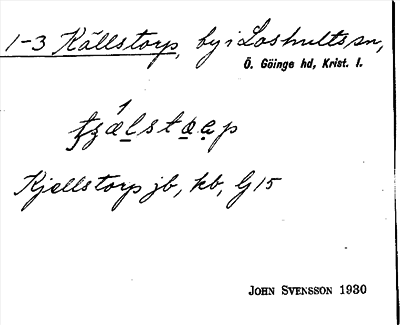 1-3 Källstorp, by i Loshults sn,
Ö. Göinge hd, Krist. l.
Kjellstorp jb, kb, G 15
JOHN SVENSSON 1930